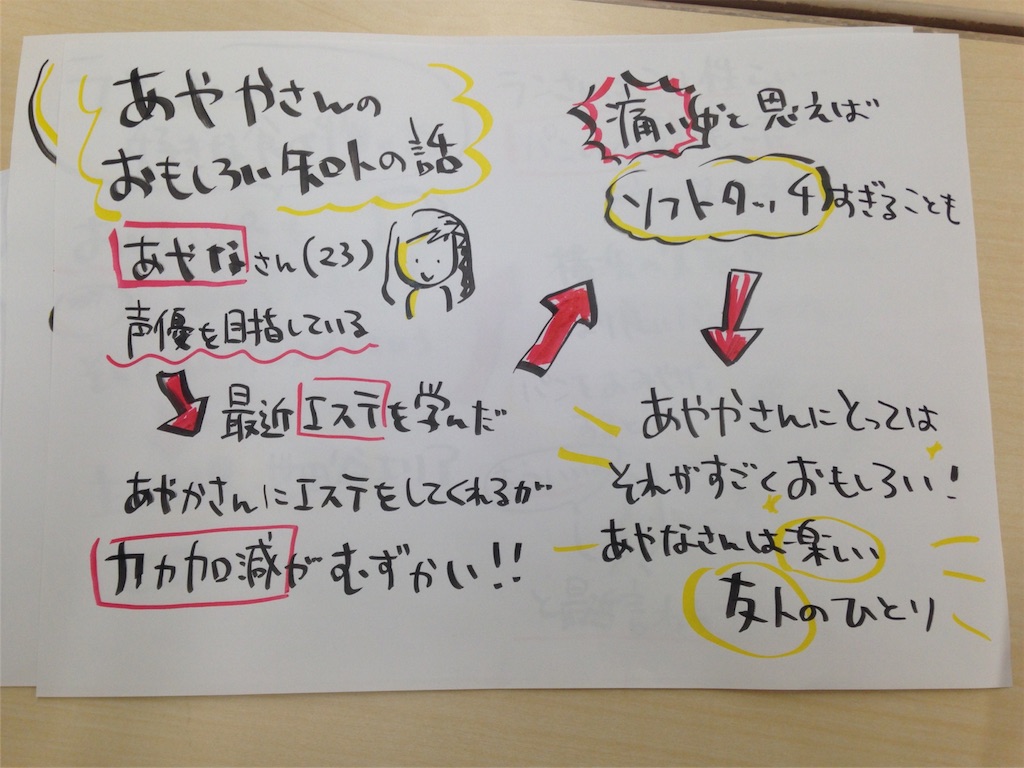 あやかさんの
おもしろい知人の話
あやなさん(23)
声優を目指している
最近エステを学んだ
あやかさんにエステをしてくれるが
力加減がむずかい!!
痛いかと思えば
ソフトタッチすぎることも
あやかさんにとっては
それがすごくおもしろい!
あやなさんは楽しい
友人のひとり